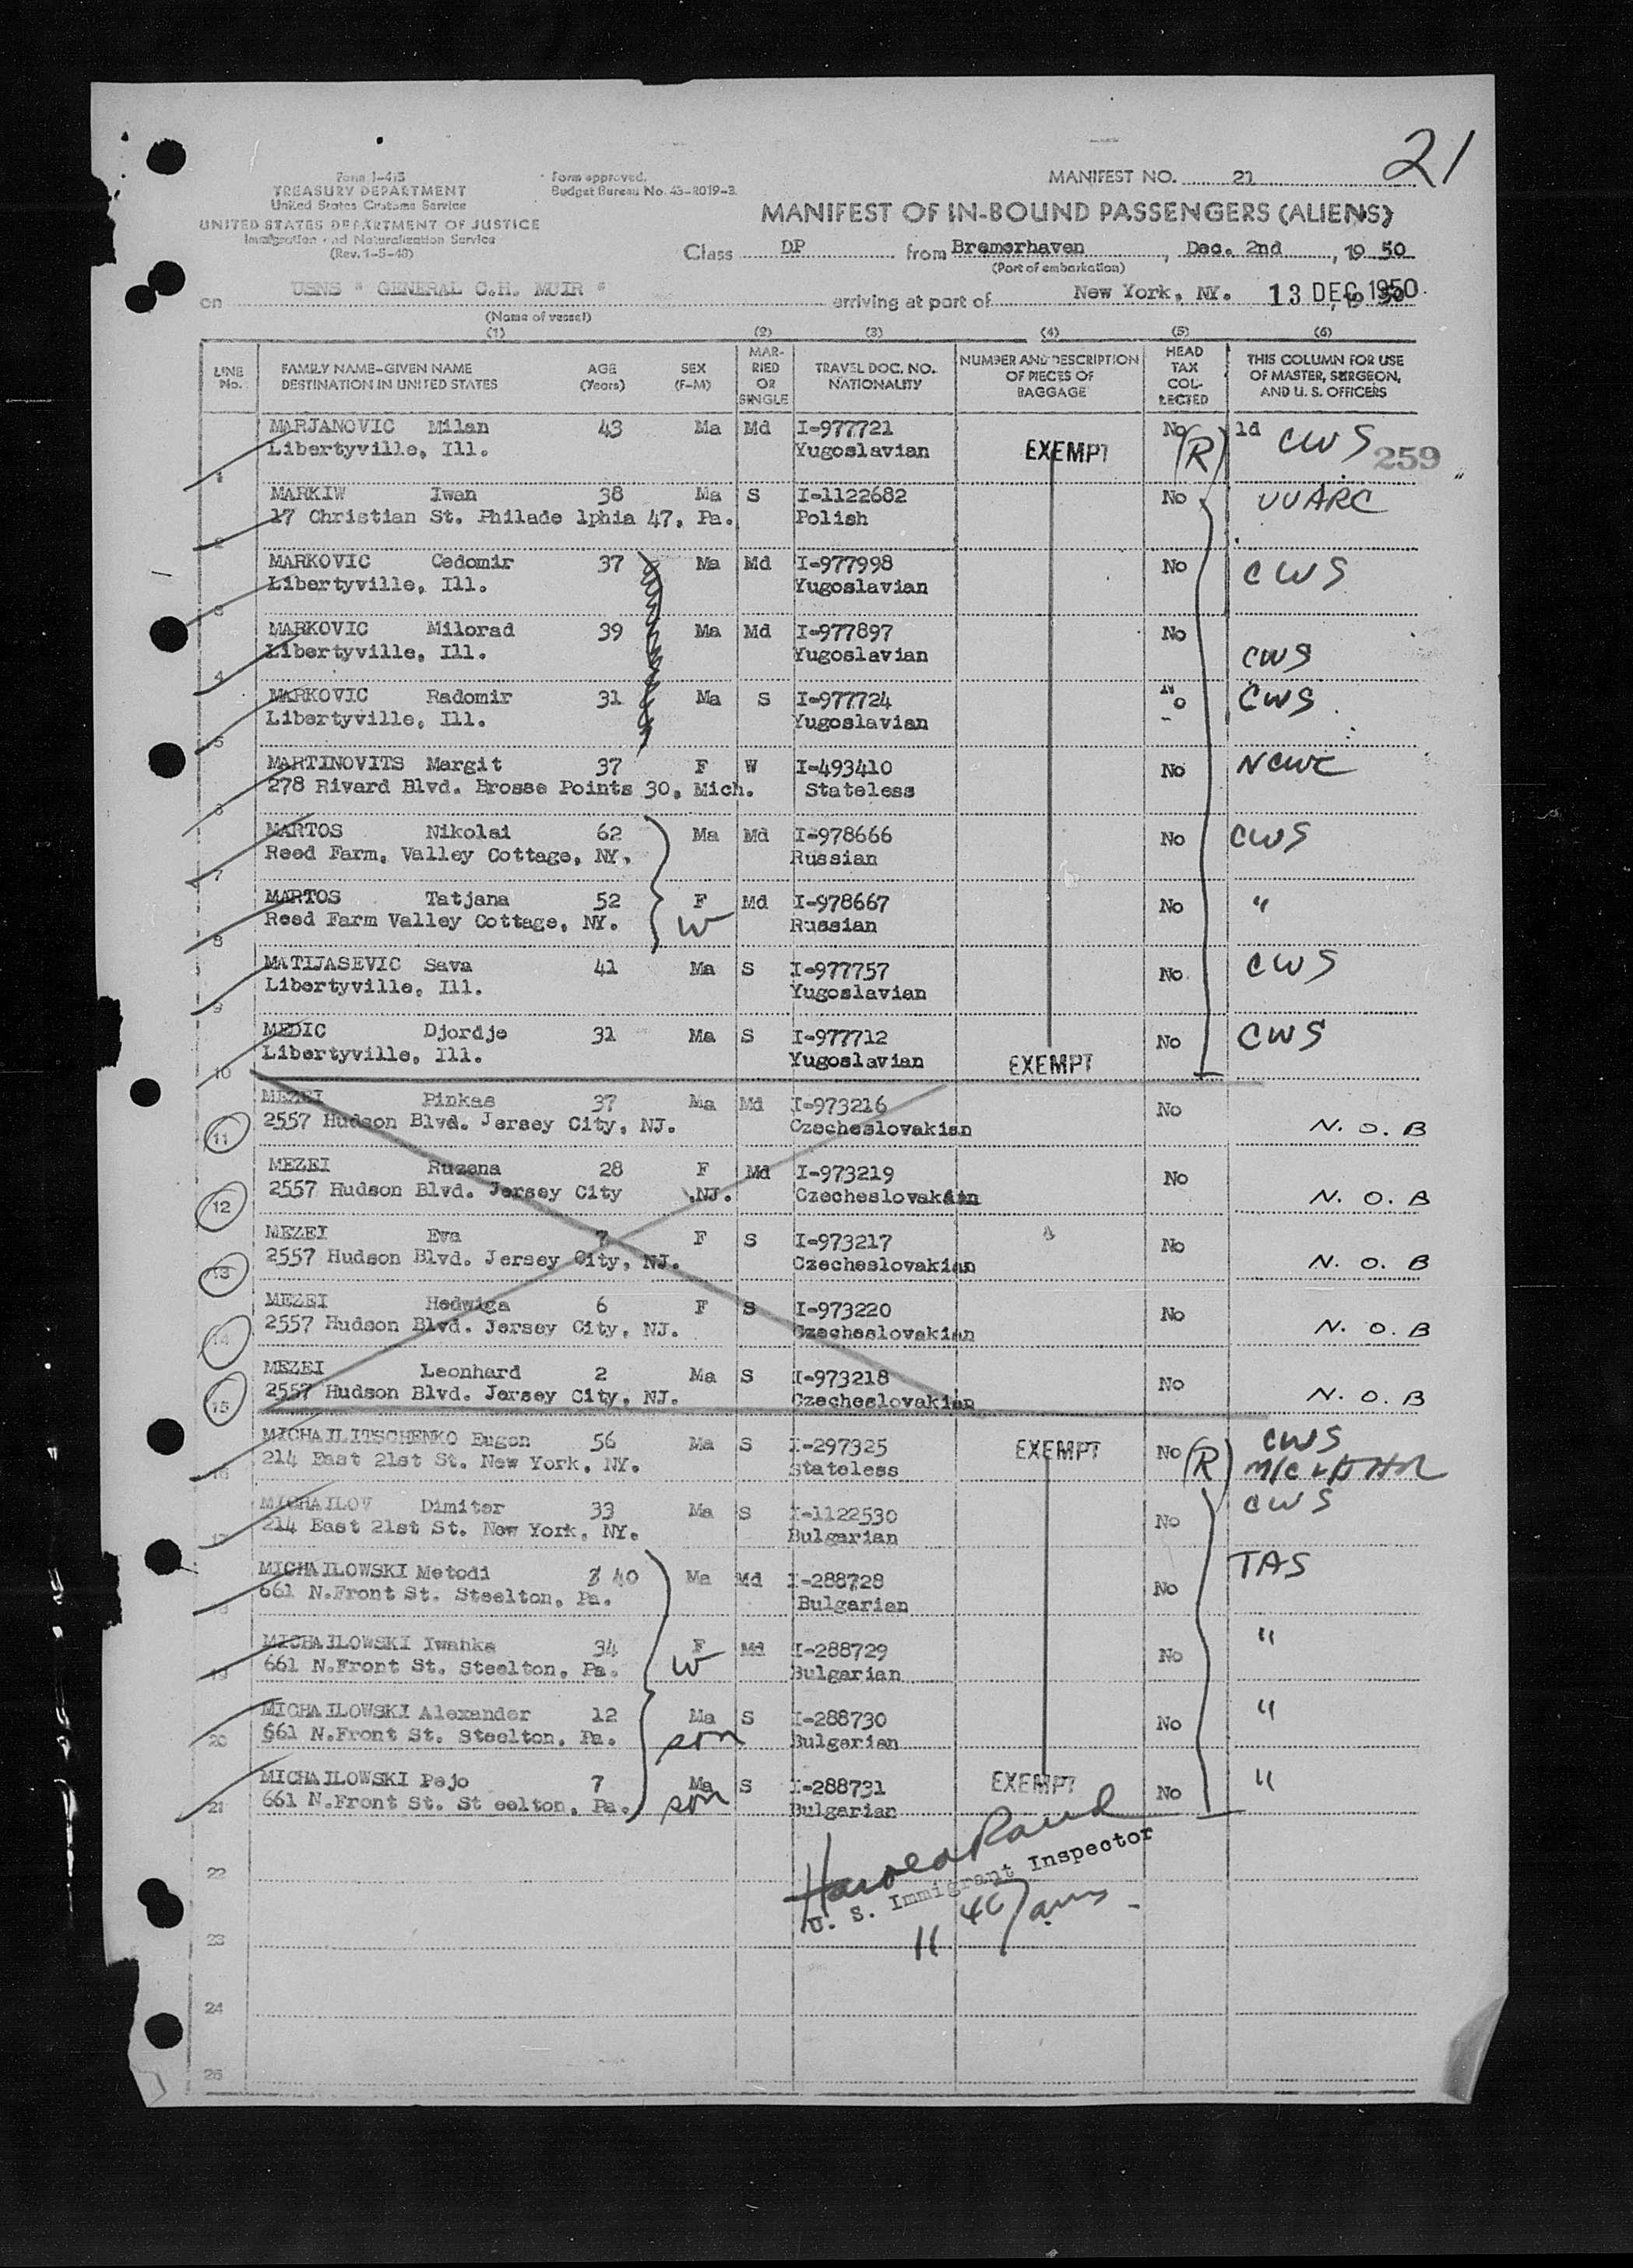 21
Form I-415
TREASURY DEPARTMENT
United States Customs Service
UNITED STATES DEPARTMENT OF JUSTICE
Immigration and Naturalization Service
(Rev. 1-5-48)
Form approved.
Budget Bureau No. 43-R019-3.
MANIFEST NO. 21
MANIFEST OF IN-BOUND PASSENGERS (ALIENS)
Class DP from Bremerhaven, Dec. 2nd, 19 50
(Port of embarkation)
on USNS " GENERAL C.H. MUIR " arriving at port of New York, NY. 13 DEC 1950
(Name of vessel)
(1) (2) (3) (4) (5) (6)
LINE No. FAMILY NAME-GIVEN NAME DESTINATION IN UNITED STATES AGE (Years) SEX (F-M) MARRIED OR SINGLE TRAVEL DOC. NO. NATIONALITY NUMBER AND DESCRIPTION OF PIECES OF BAGGAGE HEAD TAX COLLECTED THIS COLUMN FOR USE OF MASTER, SURGEON, AND U. S. OFFICERS
MARJANOVIC Milan 43 Ma Md I-977721 EXEMPT No (R) ld CWS 259
1 Libertyville, Ill. Yugoslavian
MARKIW Iwan 38 Ma S I-1122682 No UUARC
2 17 Christian St. Philade lphia 47, Pa. Polish
MARKOVIC Cedomir 37 Ma Md I-977998 No CWS
3 Libertyville, Ill. Yugoslavian
MARKOVIC Milorad 39 Ma Md I-977897 No CWS
4 Libertyville, Ill. Yugoslavian
MARKOVIC Radomir 31 Ma S I-977724 No CWS
5 Libertyville, Ill. Yugoslavian
MARTINOVITS Margit 37 F W I-493410 No NCWC
6 278 Rivard Blvd. Brosse Points 30, Mich. Stateless
MARTOS Nikolai 62 Ma Md I-978666 No CWS
7 Reed Farm, Valley Cottage, NY. Russian
MARTOS Tatjana 52 F Md I-978667 No "
8 Reed Farm Valley Cottage, NY. W Russian
MATIJASEVIC Sava 41 Ma S I-977757 No CWS
9 Libertyville, Ill. Yugoslavian
MEDIC Djordje 31 Ma S I-977712 No CWS
10 Libertyville, Ill. Yugoslavian EXEMPT
MEZEI Pinkas 37 Ma Md I-973216 No
11 2557 Hudson Blvd. Jersey City, NJ. Czecheslovakian N. O. B
MEZEI Ruzena 28 F Md I-973219 No
12 2557 Hudson Blvd. Jersey City ,NJ. Czecheslovakian N. O. B
MEZEI Eva 7 F S I-973217 No
13 2557 Hudson Blvd. Jersey City, NJ. Czecheslovakian N. O. B
MEZEI Hedwiga 6 F S I-973220 No
14 2557 Hudson Blvd. Jersey City, NJ. Czecheslovakian N. O. B
MEZEI Leonhard 2 Ma S I-973218 No
15 2557 Hudson Blvd. Jersey City, NJ. Czecheslovakian N. O. B
MICHAILITSCHENKO Eugen 56 Ma S I-297325 EXEMPT No (R) CWS
16 214 East 21st St. New York, NY. Stateless
MICHAILOV Dimiter 33 Ma S I-1122530 No CWS
17 214 East 21st St. New York, NY. Bulgarian
MICHAILOWSKI Metodi 40 Ma Md I-288728 No TAS
18 661 N.Front St. Steelton, Pa. Bulgarian
MICHAILOWSKI Iwanka 34 F Md I-288729 No "
19 661 N.Front St. Steelton, Pa. W Bulgarian
MICHAILOWSKI Alexander 12 Ma S I-288730 No "
20 661 N.Front St. Steelton, Pa. son Bulgarian
MICHAILOWSKI Pejo 7 Ma S I-288731 EXEMPT No "
21 661 N.Front St. St eelton, Pa. son Bulgarian
22
U. S. Immigrant Inspector
23
24
25